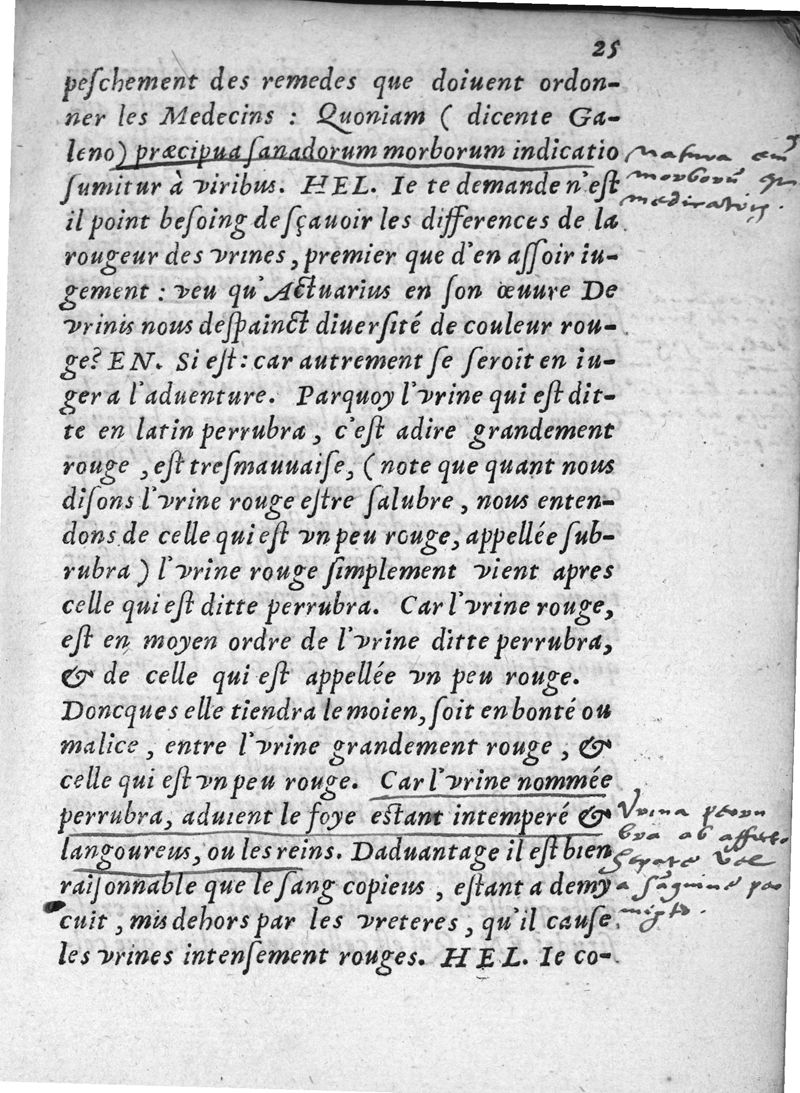 25
peſchement des remedes que doiuent ordon-
ner les Medecins : Quoniam ( dicente Ga-
leno) præcipua ſanadorum morborum indicatio
ſumitur à viribus. HEL. Ie te demande n'eſt
il point beſoing de ſçauoir les differences de la
rougeur des vrines, premier que d'en aſſoir iu-
gement : veu qu'Actuarius en ſon œuure De
vrinis nous deſpainct diuerſité de couleur rou-
ge? EN. Si eſt: car autrement ſe ſeroit en iu-
ger a l'aduenture. Parquoy l'vrine qui eſt dit-
te en latin perrubra, c'eſt adire grandement
rouge, eſt treſmauuaiſe, (note que quant nous
diſons l'vrine rouge eſtre ſalubre, nous enten-
dons de celle qui eſt vn peu rouge, appellée ſub-
rubra) l'vrine rouge ſimplement vient apres
celle qui eſt ditte perrubra. Car l'vrine rouge,
eſt en moyen ordre de l'vrine ditte perrubra,
& de celle qui eſt appellée vn peu rouge.
Doncques elle tiendra le moien, ſoit en bonté ou
malice, entre l'vrine grandement rouge, &
celle qui eſt vn peu rouge. Car l'vrine nommée
perrubra, aduient le foye eſtant intemperé &
langoureus, ou les reins. Daduantage il eſt bien
raiſonnable que le ſang copieus, eſtant a demy
cuit, mis dehors par les vreteres, qu'il cauſe
les vrines intenſement rouges. HEL. Ie co-
natura
morborũ
Vrina perru
bra ab affecto
hepate vel
a ſãguine per
mixto.